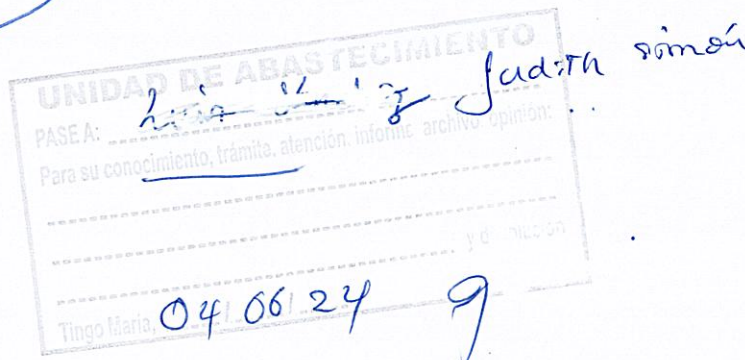 UNIDAD DE ABASTECIMIENTO
PASE A: Judith Simón
Para su conocimiento, trámite, atención, informe, archivo, opinión:
Tingo María, 04 06 24